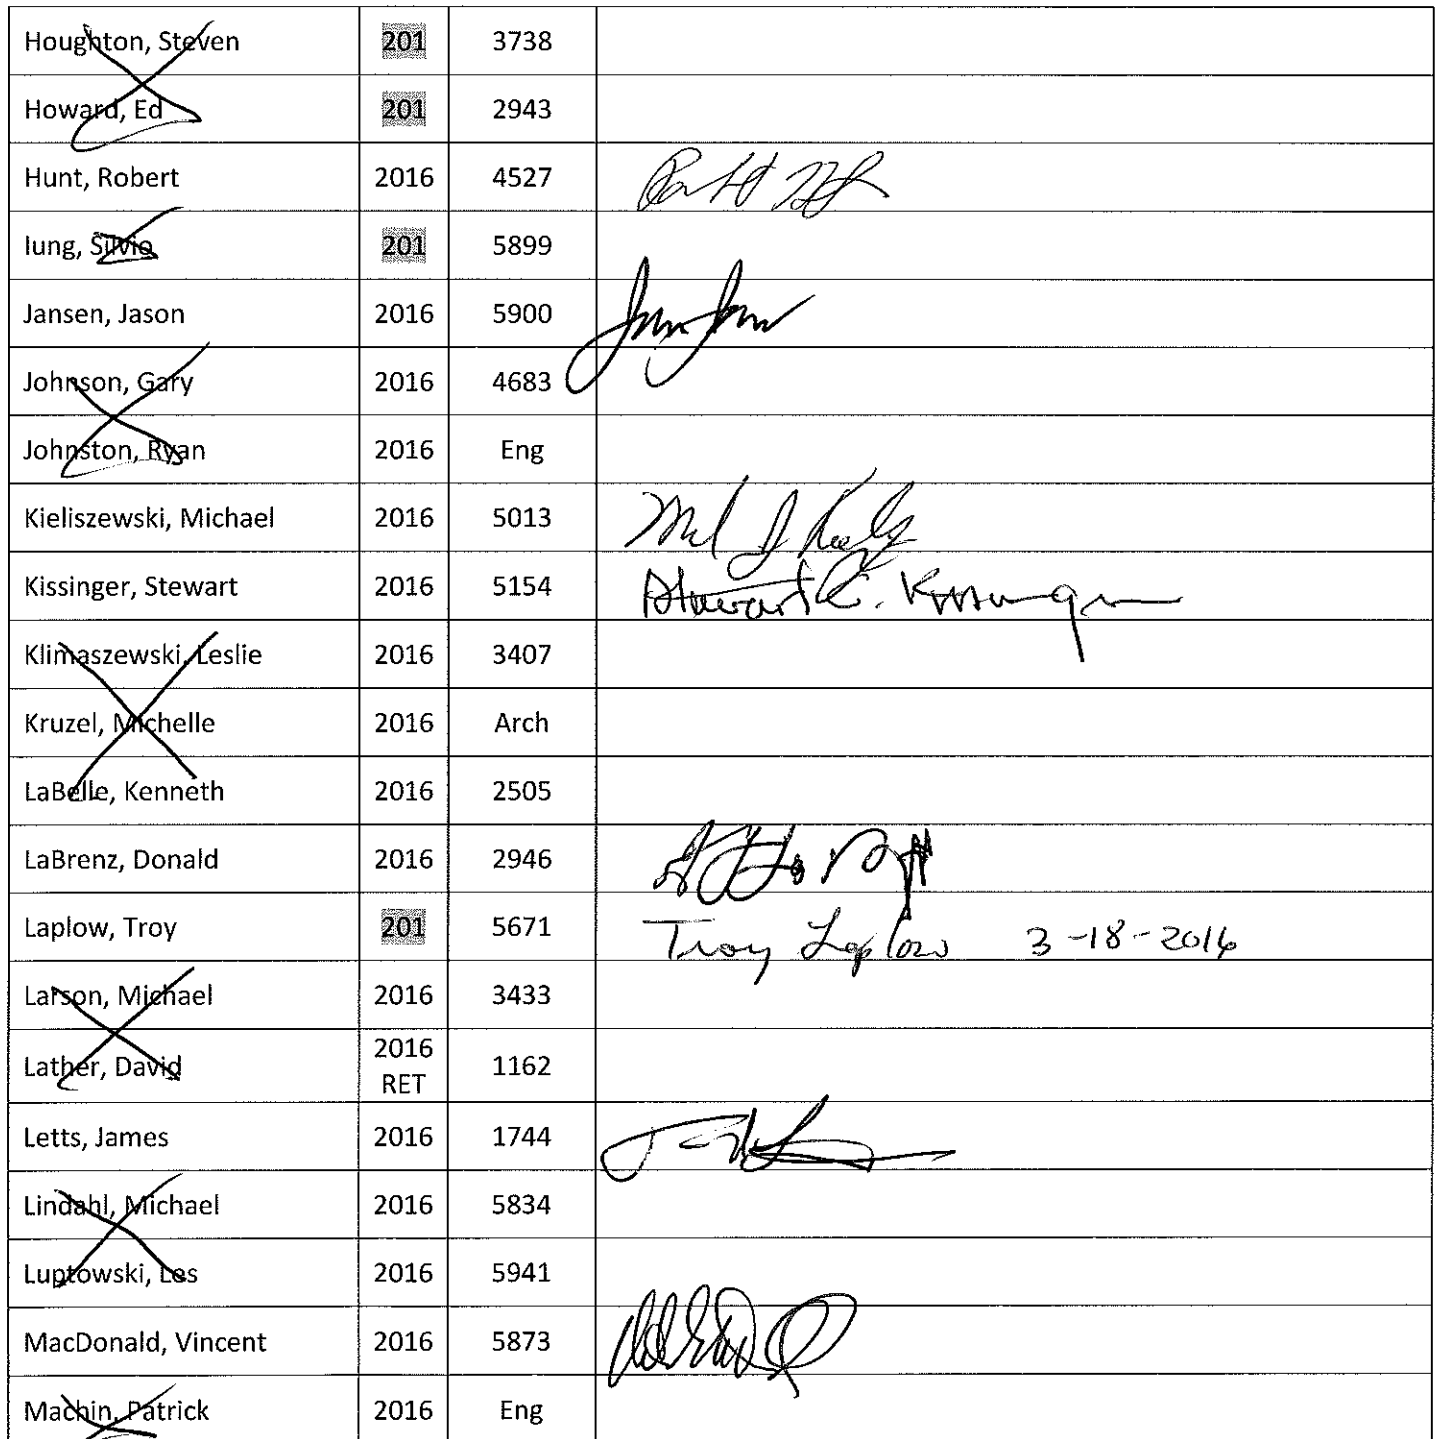 Houghton, Steven 201 3738
Howard, Ed 201 2943
Hunt, Robert 2016 4527
Iung, Silvio 201 5899
Jansen, Jason 2016 5900
Johnson, Gary 2016 4683
Johnston, Ryan 2016 Eng
Kieliszewski, Michael 2016 5013
Kissinger, Stewart 2016 5154 Stewart C. Kissinger
Klimaszewski, Leslie 2016 3407
Kruzel, Michelle 2016 Arch
LaBelle, Kenneth 2016 2505
LaBrenz, Donald 2016 2946
Laplow, Troy 201 5671 Troy Laplow 3-18-2016
Larson, Michael 2016 3433
Lather, David 2016 RET 1162
Letts, James 2016 1744
Lindahl, Michael 2016 5834
Luptowski, Les 2016 5941
MacDonald, Vincent 2016 5873
Machin, Patrick 2016 Eng